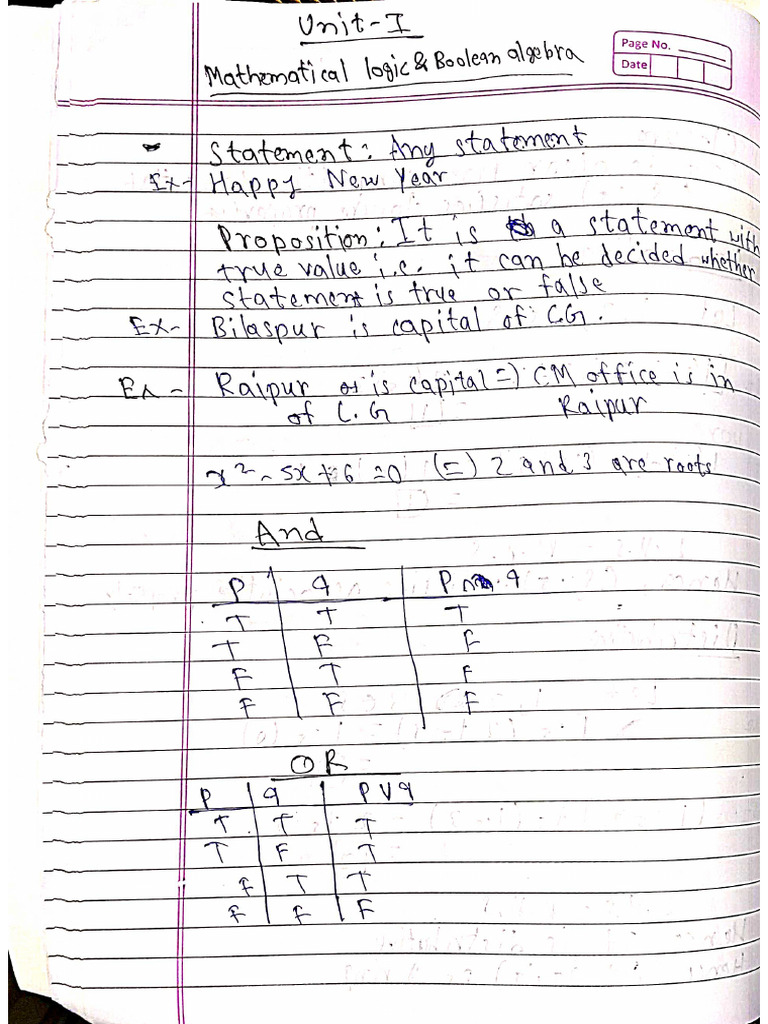 Unit-I
Mathematical logic & Boolean algebra
Page No.
Date
Statement: Any statement
Ex- Happy New Year
Proposition: It is a statement with
true value i.e. it can be decided whether
statement is true or false
Ex- Bilaspur is capital of CG.
Ex- Raipur is capital => CM office is in
of C.G Raipur
x² - 5x + 6 = 0 (=) 2 and 3 are roots
And
P q P ∧ q
T T T
T F F
F T F
F F F
OR
P q P V q
T T T
T F T
F T T
F F F